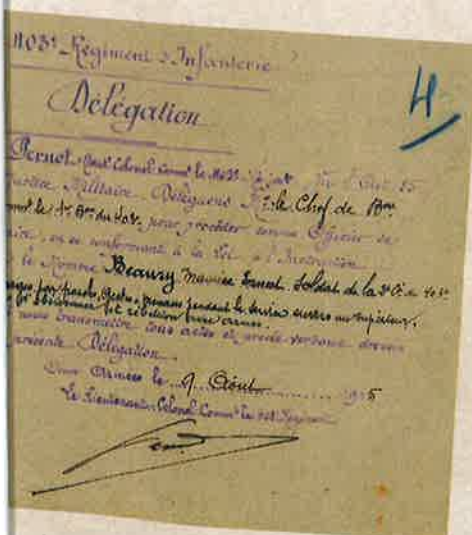 103e Régiment d'Infanterie
4
Délégation
Pernot Lieut Colonel Commt le 103e
Justice Militaire Déléguons Mr le Chef de Bon
pour procéder comme Officier de
en se conformant à la loi, à l'Instruction
le nommé Beaury Maurice Ernest, Soldat de la 3e Cie du 103e
par paroles, gestes, menaces pendant le service envers un supérieur,
et rébellion sans armes.
nous transmettre tous actes et procès-verbaux
présente Délégation
Aux Armées le 9 Août 1915
Le Lieutenant-Colonel Commt le 103e Régiment